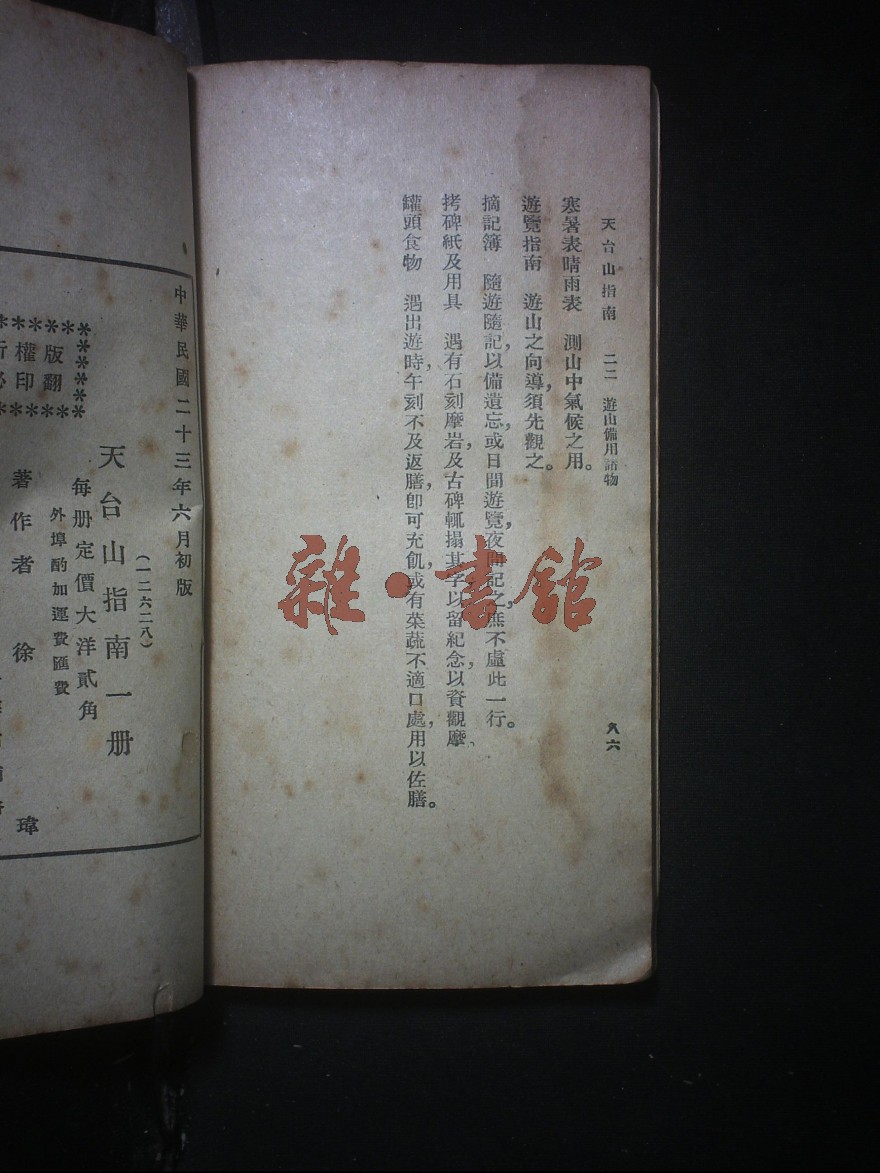 天台山指南 二二 遊山備用諸物 八六
寒暑表晴雨表 測山中氣候之用。
遊覽指南 遊山之向導,須先觀之。
摘記簿 隨遊隨記,以備遺忘,或日間遊覽,夜間記之,庶不虛此一行。
拷碑紙及用具 遇有石刻摩岩,及古碑輒搨其字,以留紀念,以資觀摩、
罐頭食物 遇出遊時,午刻不及返膳,卽可充飢,或有菜蔬不適口處,用以佐膳。
中華民國二十三年六月初版
版權
翻印必
(一二六二八)
天台山指南一册
每册定價大洋貳角
外埠酌加運費匯費
著作者 徐瑋
雜·書館